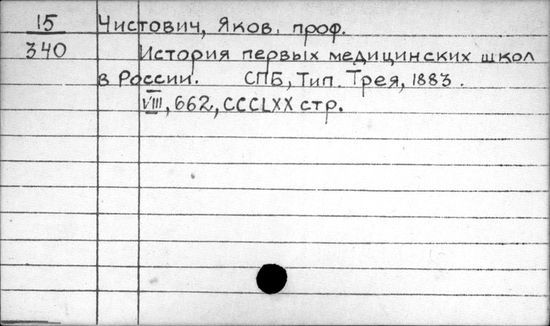 15 Чистович, Яков. проф.
340 История первых медицинских школ
в России. СПБ, Тип. Трея, 1883.
VIII, 662, CCCLXX стр.